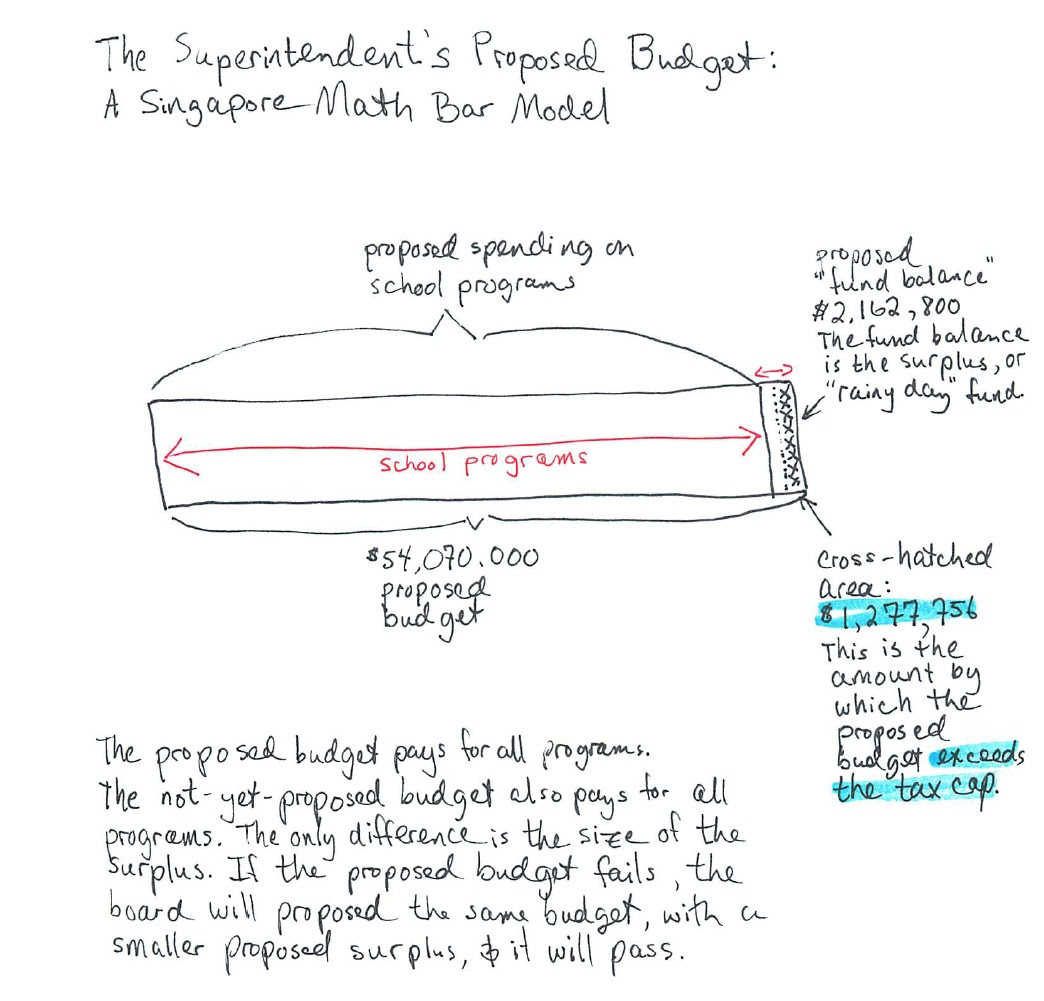 The Superintendent's Proposed Budget:
A Singapore Math Bar Model
proposed spending on
school programs
proposed
"fund balance"
$2,162,800
The fund balance
is the surplus, or
"rainy day" fund.
school programs
$54,070.000
proposed
budget
cross-hatched
area:
$1,277,756
This is the
amount by
which the
proposed
budget exceeds
the tax cap.
The proposed budget pays for all programs.
The not-yet-proposed budget also pays for all
programs. The only difference is the size of the
surplus. If the proposed budget fails, the
board will proposed the same budget, with a
smaller proposed surplus, & it will pass.